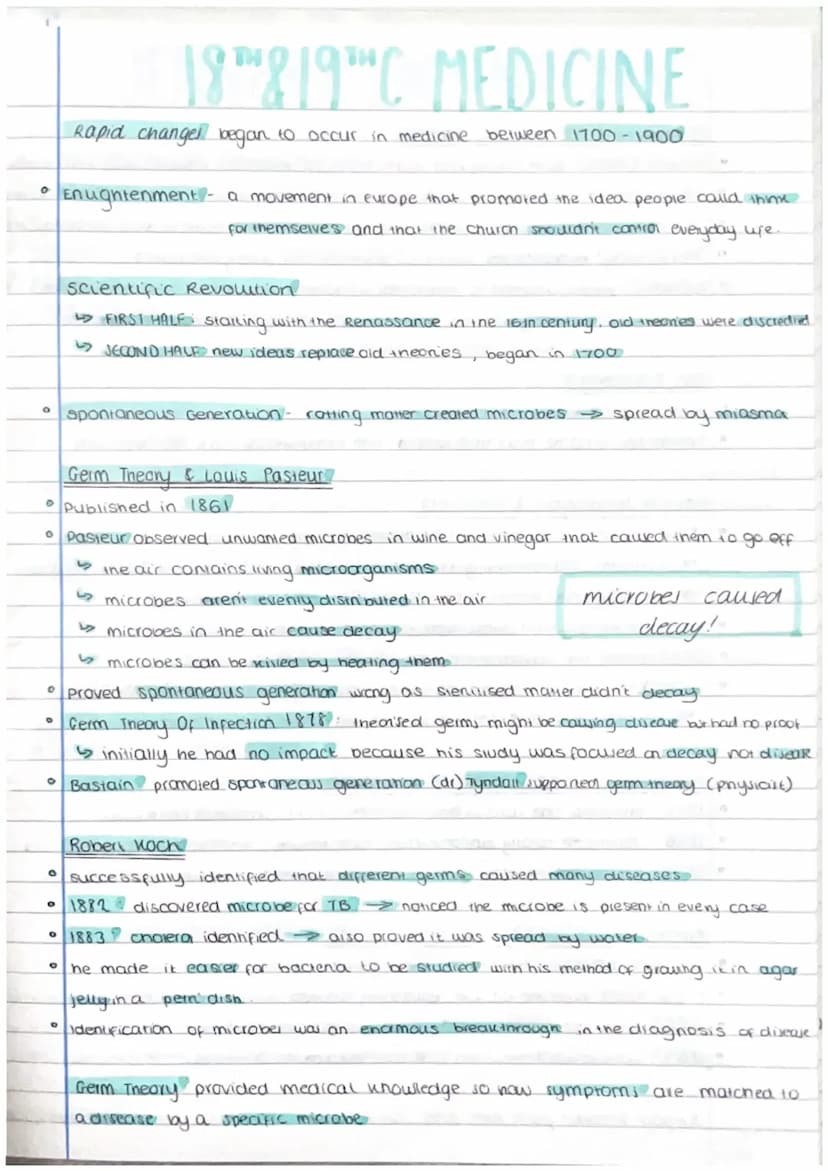 18TH & 19TH C MEDICINE
Rapid changes began to occur in medicine between 1700-1900
Enlightenment - a movement in Europe that promoted the idea people could think
for themselves and that the Church shouldn't control everyday life.
Scientific Revolution
↳ FIRST HALF: starting with the Renassance in the 16th century, old theories were discredited
↳ SECOND HALF: new ideas replace old theories, began in 1700
Spontaneous Generation - rotting matter created microbes → spread by miasma
Germ Theory & Louis Pasteur
Published in 1861
Pasteur observed unwanted microbes in wine and vinegar that caused them to go off
↳ the air contains living microorganisms
↳ microbes aren't evenly distributed in the air
↳ microbes in the air cause decay
↳ microbes can be killed by heating them
microbes caused
decay!
Proved spontaneous generation wrong as sterilised matter didn't decay
Germ Theory Of Infection 1878: theorised germs might be causing disease but had no proof
↳ initially he had no impact because his study was focused on decay not disease
Bastain promoted spontaneous generation (dr) Tyndall supported germ theory (physicist)
Robert Koch
successfully identified that different germs caused many diseases
1882: discovered microbe for TB → noticed the microbe is present in every case
1883: cholera identified → also proved it was spread by water
he made it easier for bacteria to be studied with his method of growing it in agar
jelly in a petri dish.
Identification of microbes was an enormous breakthrough in the diagnosis of disease
Germ Theory provided medical knowledge so now symptoms are matched to
a disease by a specific microbe